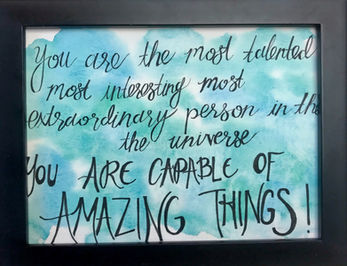 You are the most talented
most interesting most
extraordinary person in the
the universe
YOU ARE CAPABLE OF
AMAZING THINGS!